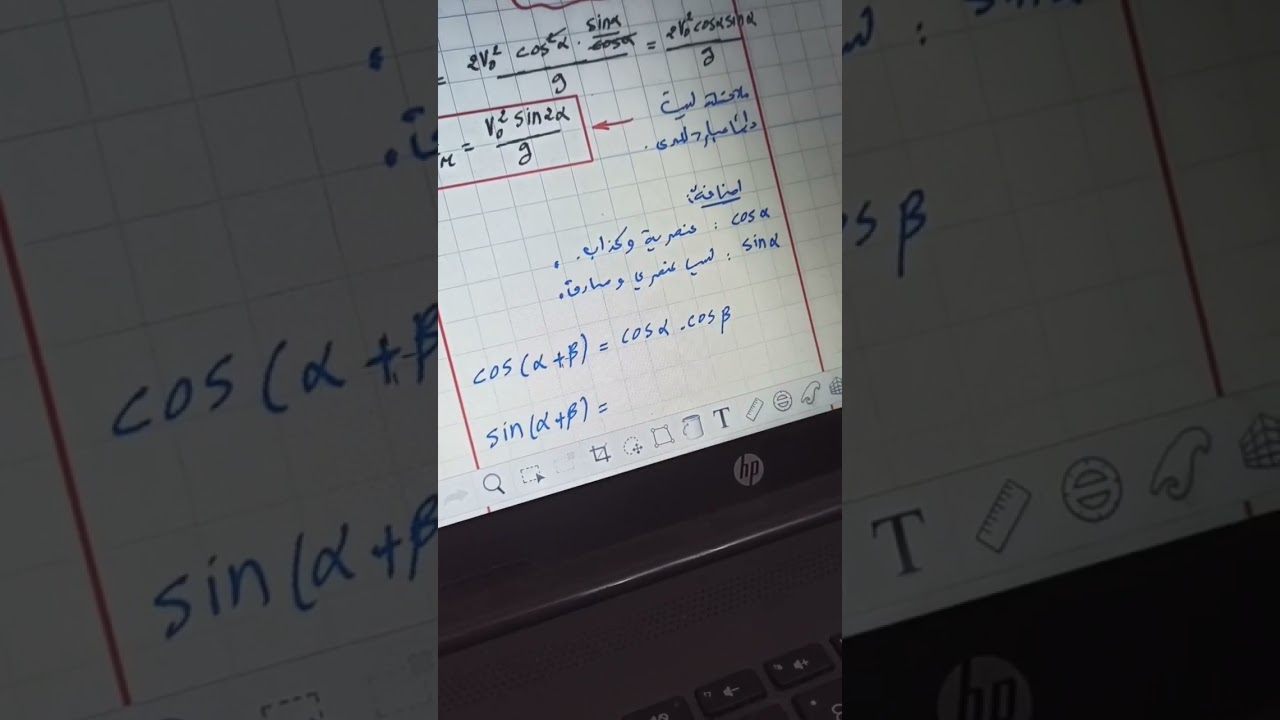 = 2V₀² cos²α . sinα/cosα / g = 2V₀² cosα sinα / g
M = V₀² sin2α / g
ملاحظة ليست
دائما عبارة المدى .
إضافة:
cosα : عنصرية وكذاب .
sinα : ليس عنصري وصادق .
cos(α+β) = cosα . cosβ
sin(α+β) =
T
hp